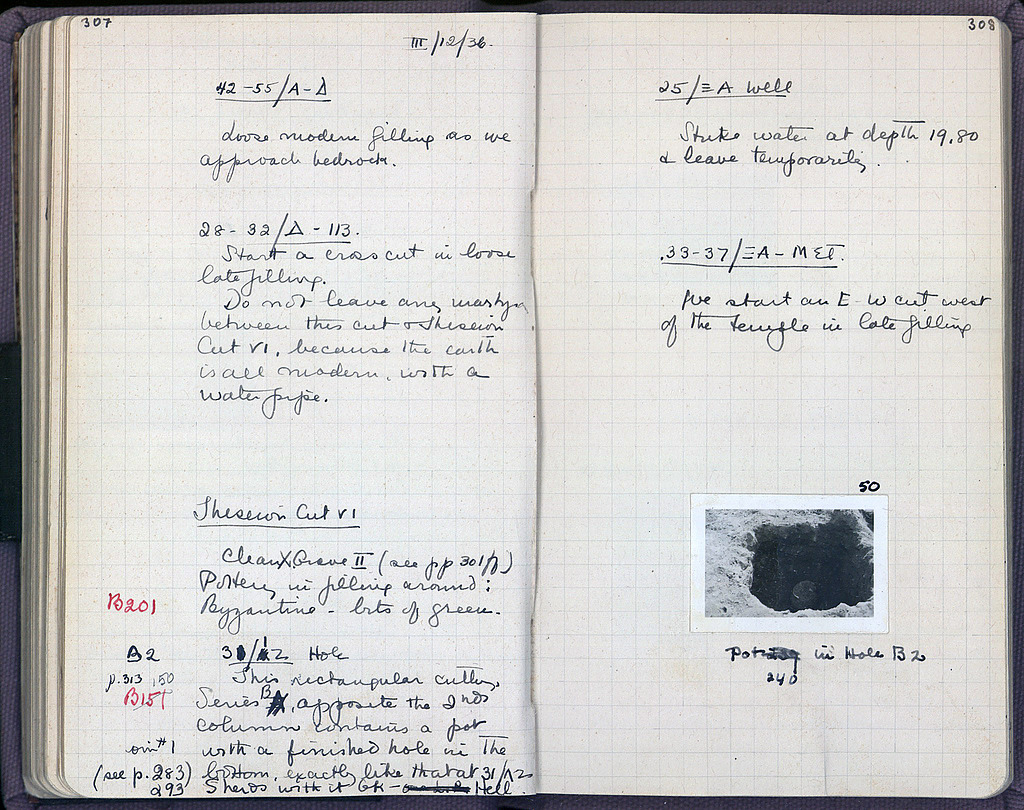 307
III/12/36.
42-55/A-Δ
Loose modern filling as we
approach bedrock.
28-32/Δ-113.
Start a cross cut in loose
late filling.
Do not leave any
between this cut & Theseion
Cut VI, because the earth
is all modern, with a
water pipe.
Theseion Cut VI
Clean Grave II (see pp 301ff)
Pottery in filling around:
B201
Byzantine - bits of green.
B2
Hole
p.313, 50
This rectangular cutting,
B15T
Series B, opposite the 2nd
column contains a pot
with a finished hole in the
(see p. 283)
bottom, exactly like that at 31/
293
Sherds with it Gk - Hell.
308
25/ΞA Well
Strike water at depth 19.80
& leave temporarily.
33-37/ΞA-MET.
We start an E-W cut west
of the temple in late filling
50
Pot in Hole B2
240